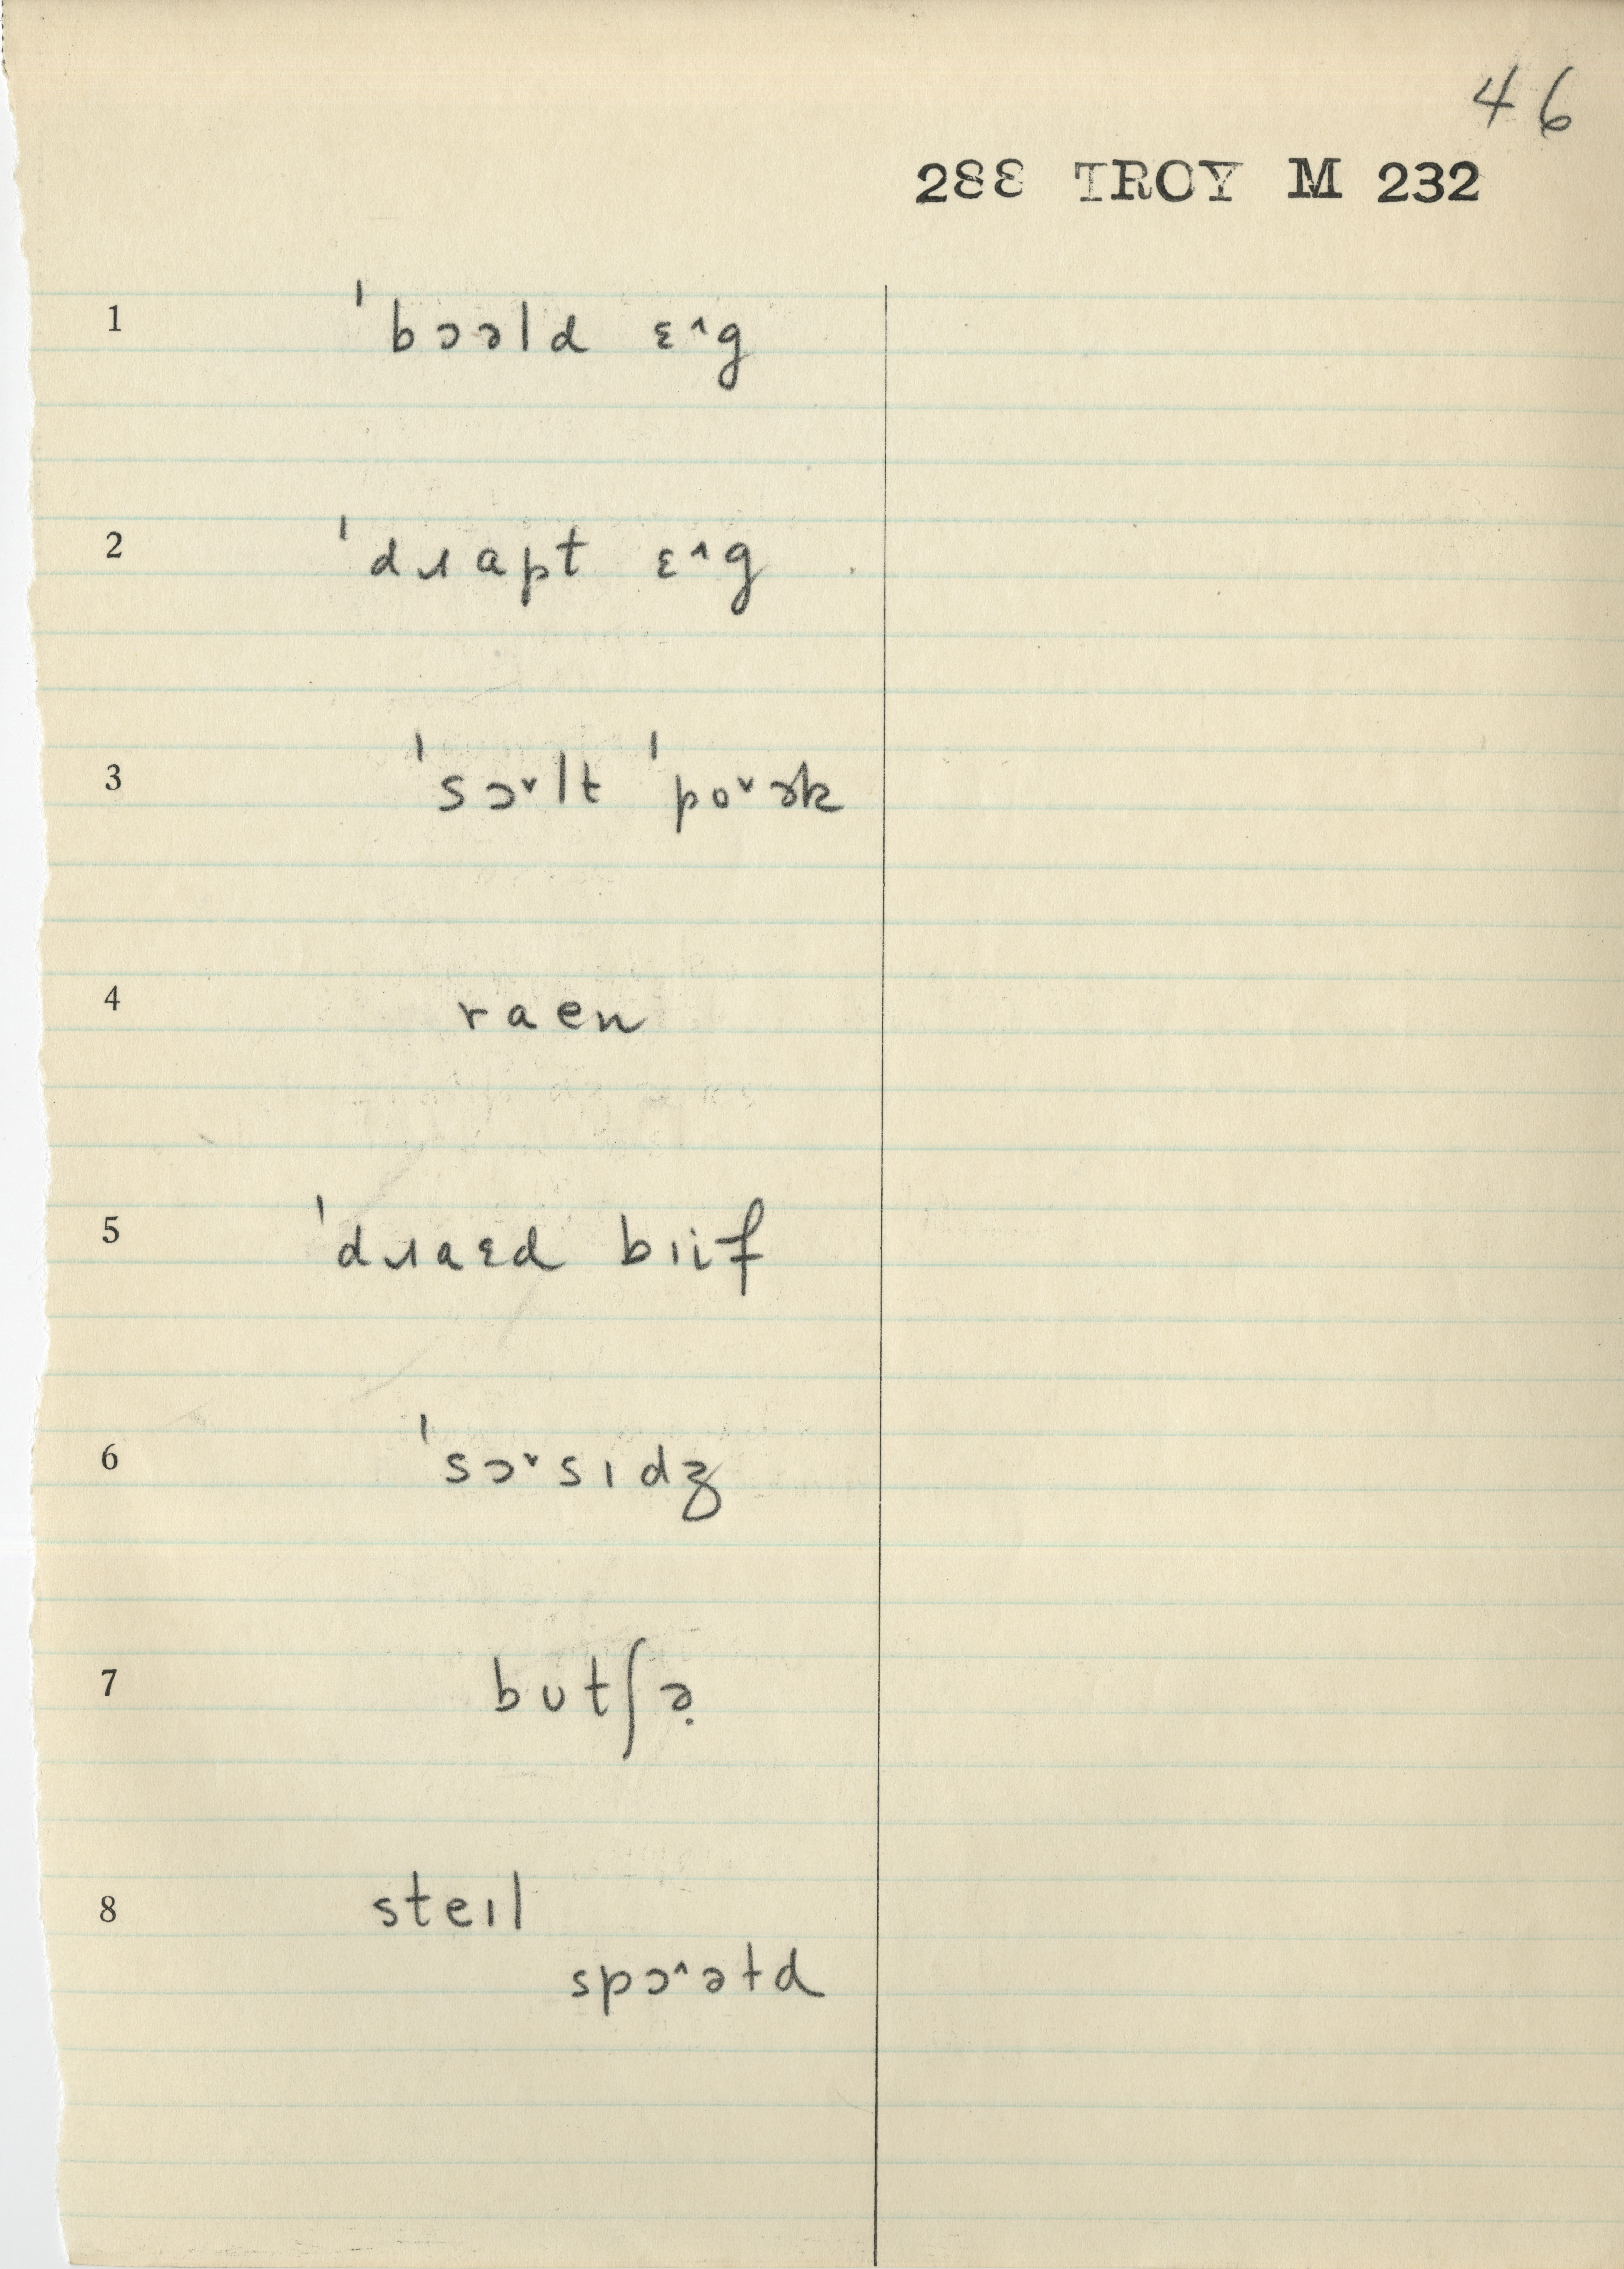 46
288 TROY M 232
1 ˈbɔəld ɛ˄g
2 ˈdɹapt ɛ˄g
3 ˈsɔ˅lt ˈpo˅ɚk
4 raen
5 ˈdɹaɛd bɪif
6 ˈsɔ˅sɪdʒ
7 bʊtʃə̣
8 steɪl
spɔ˄ətd